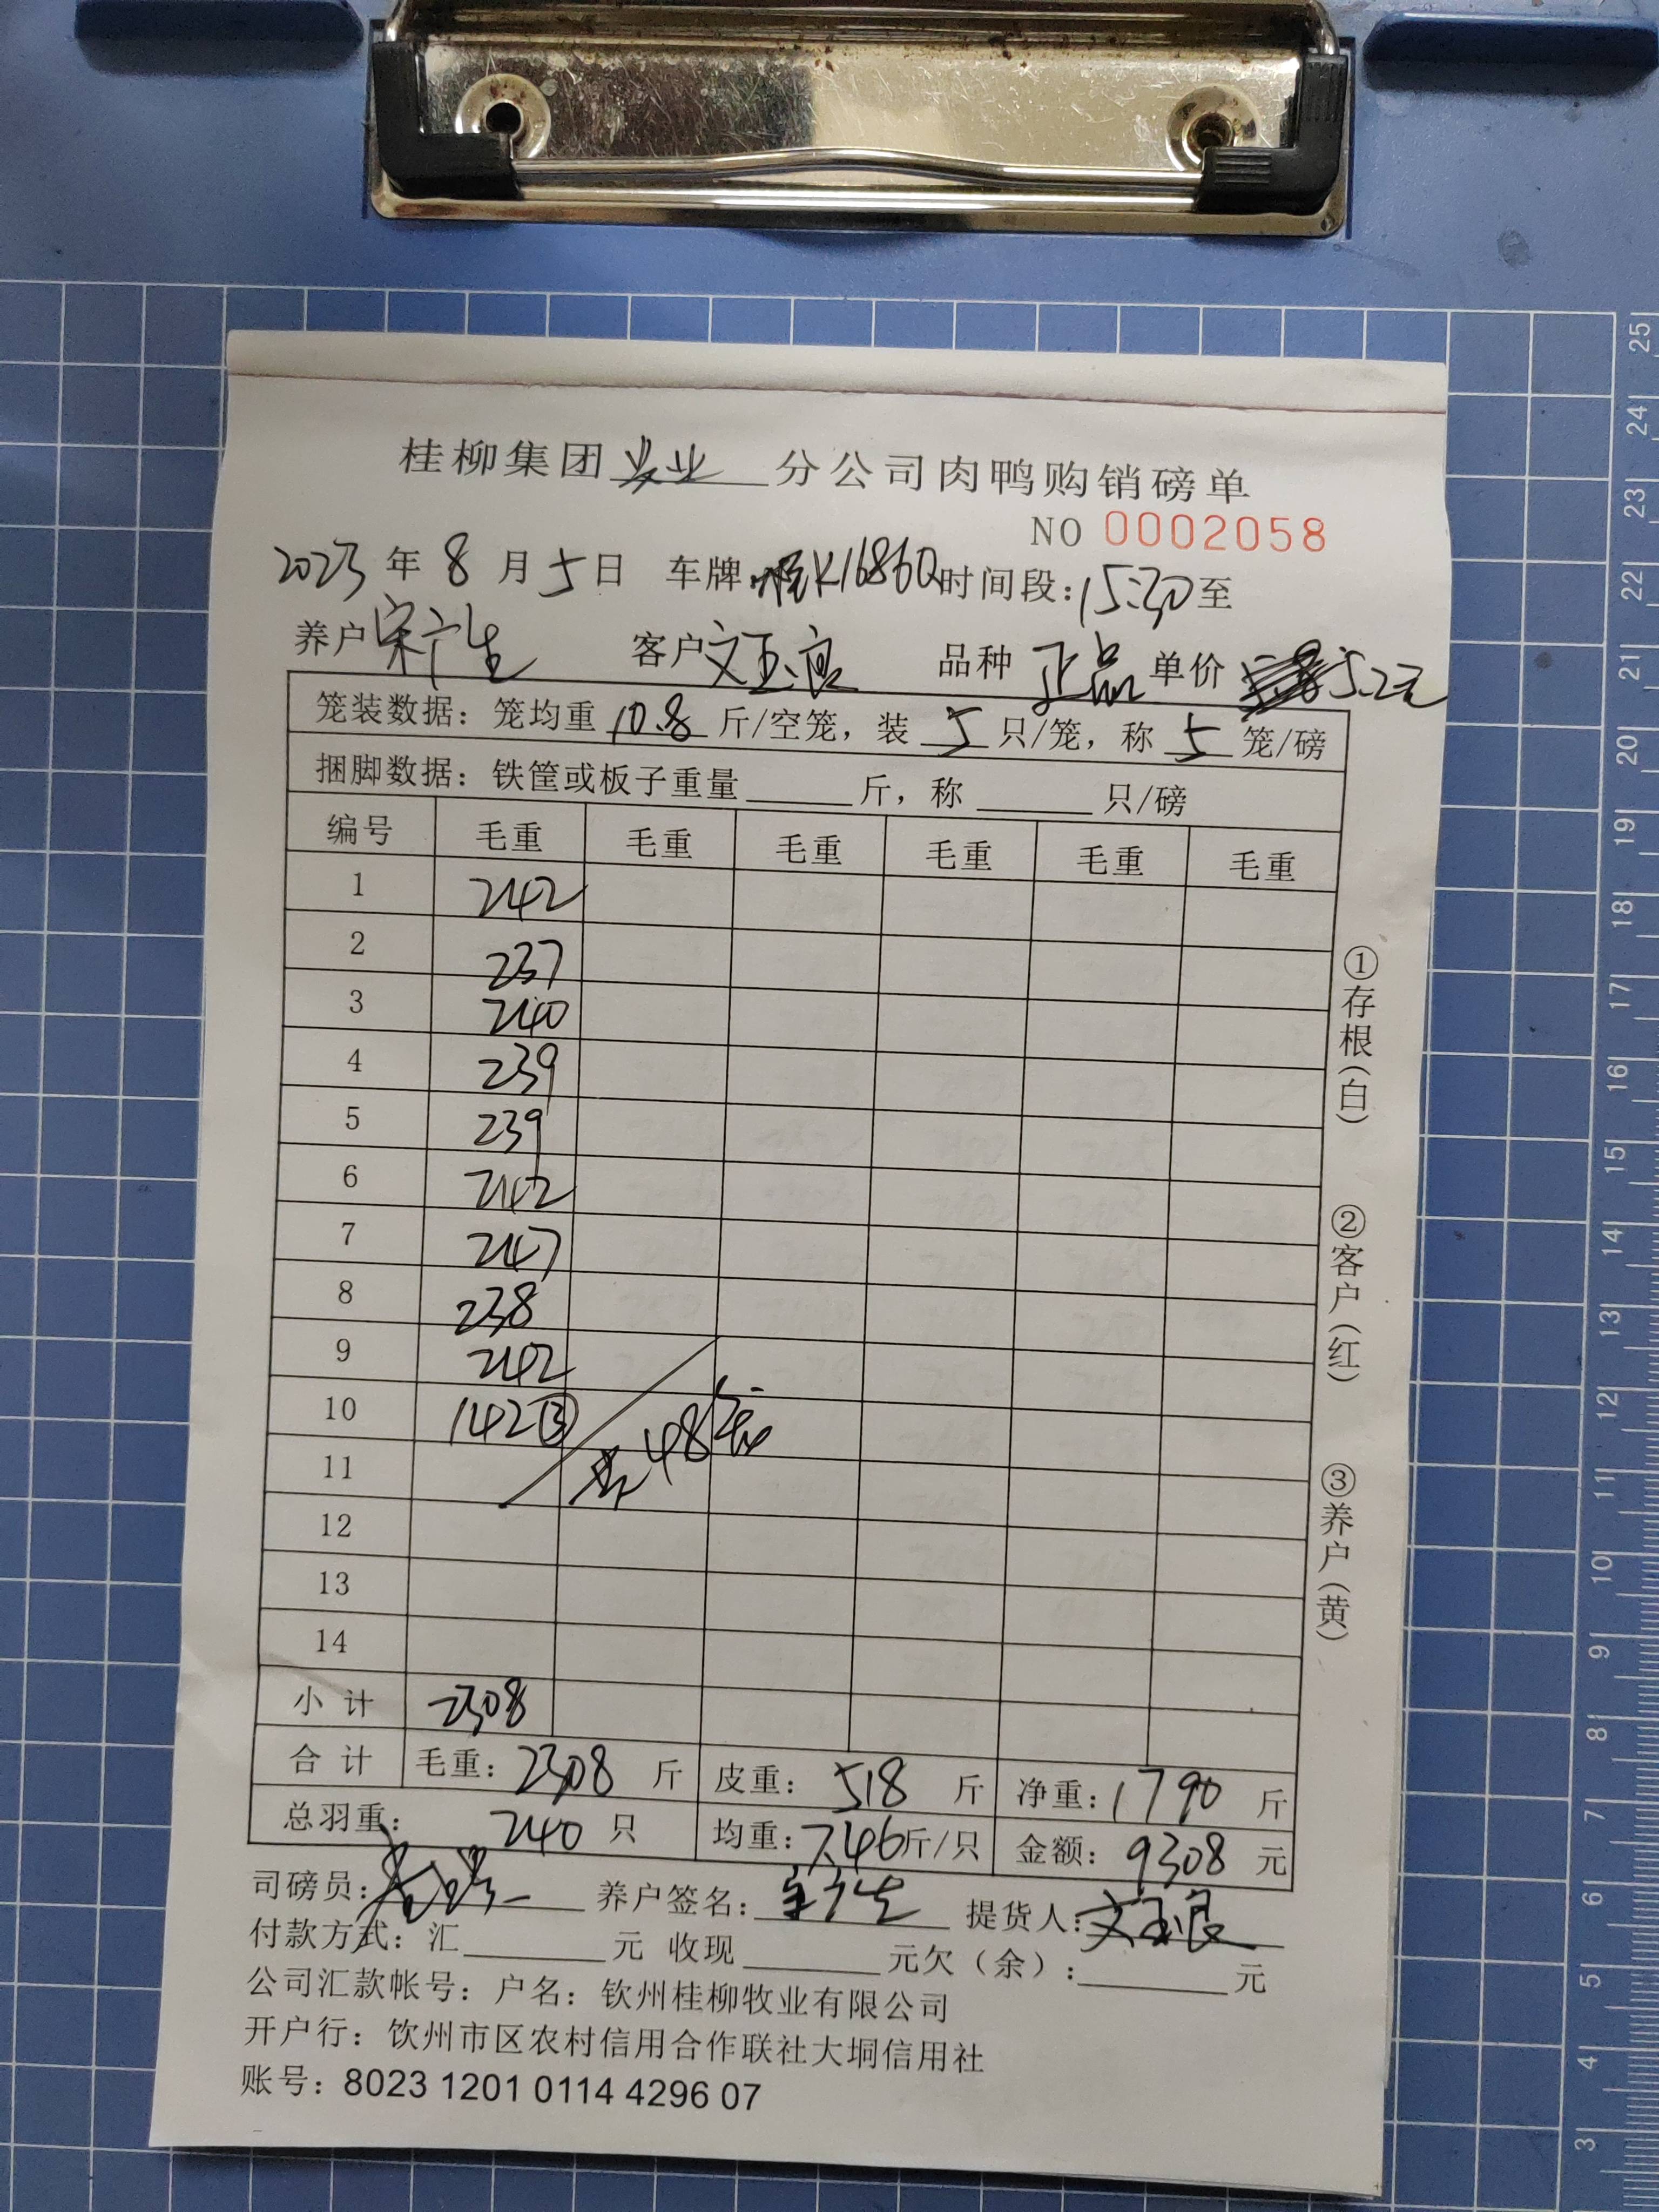 桂柳集团农业分公司肉鸭购销磅单
NO 0002058
2023年8月5日 车牌:桂K16860 时间段:15:30至
养户 宋广生 客户 文玉良 品种 正品 单价 5.2元
笼装数据：笼均重 10.8 斤/空笼，装 5 只/笼，称 5 笼/磅
捆脚数据：铁筐或板子重量______斤，称______只/磅
编号 毛重 毛重 毛重 毛重 毛重 毛重
1 242
2 237
3 240
4 239
5 239
6 242
7 247
8 238
9 242
10 142③
共48笼
11
12
13
14
小计 2308
合计 毛重：2308 斤 皮重：518 斤 净重：1790 斤
总羽重：240 只 均重：7.46斤/只 金额：9308 元
司磅员： 养户签名：宋广生 提货人：文玉良
付款方式：汇______元 收现______元欠（余）：______元
公司汇款帐号：户名：钦州桂柳牧业有限公司
开户行：饮州市区农村信用合作联社大垌信用社
账号：8023 1201 0114 4296 07
①存根（白） ②客户（红） ③养户（黄）
25
24
23
22
21
20
19
18
17
16
15
14
13
12
11
10
9
8
7
6
5
4
3